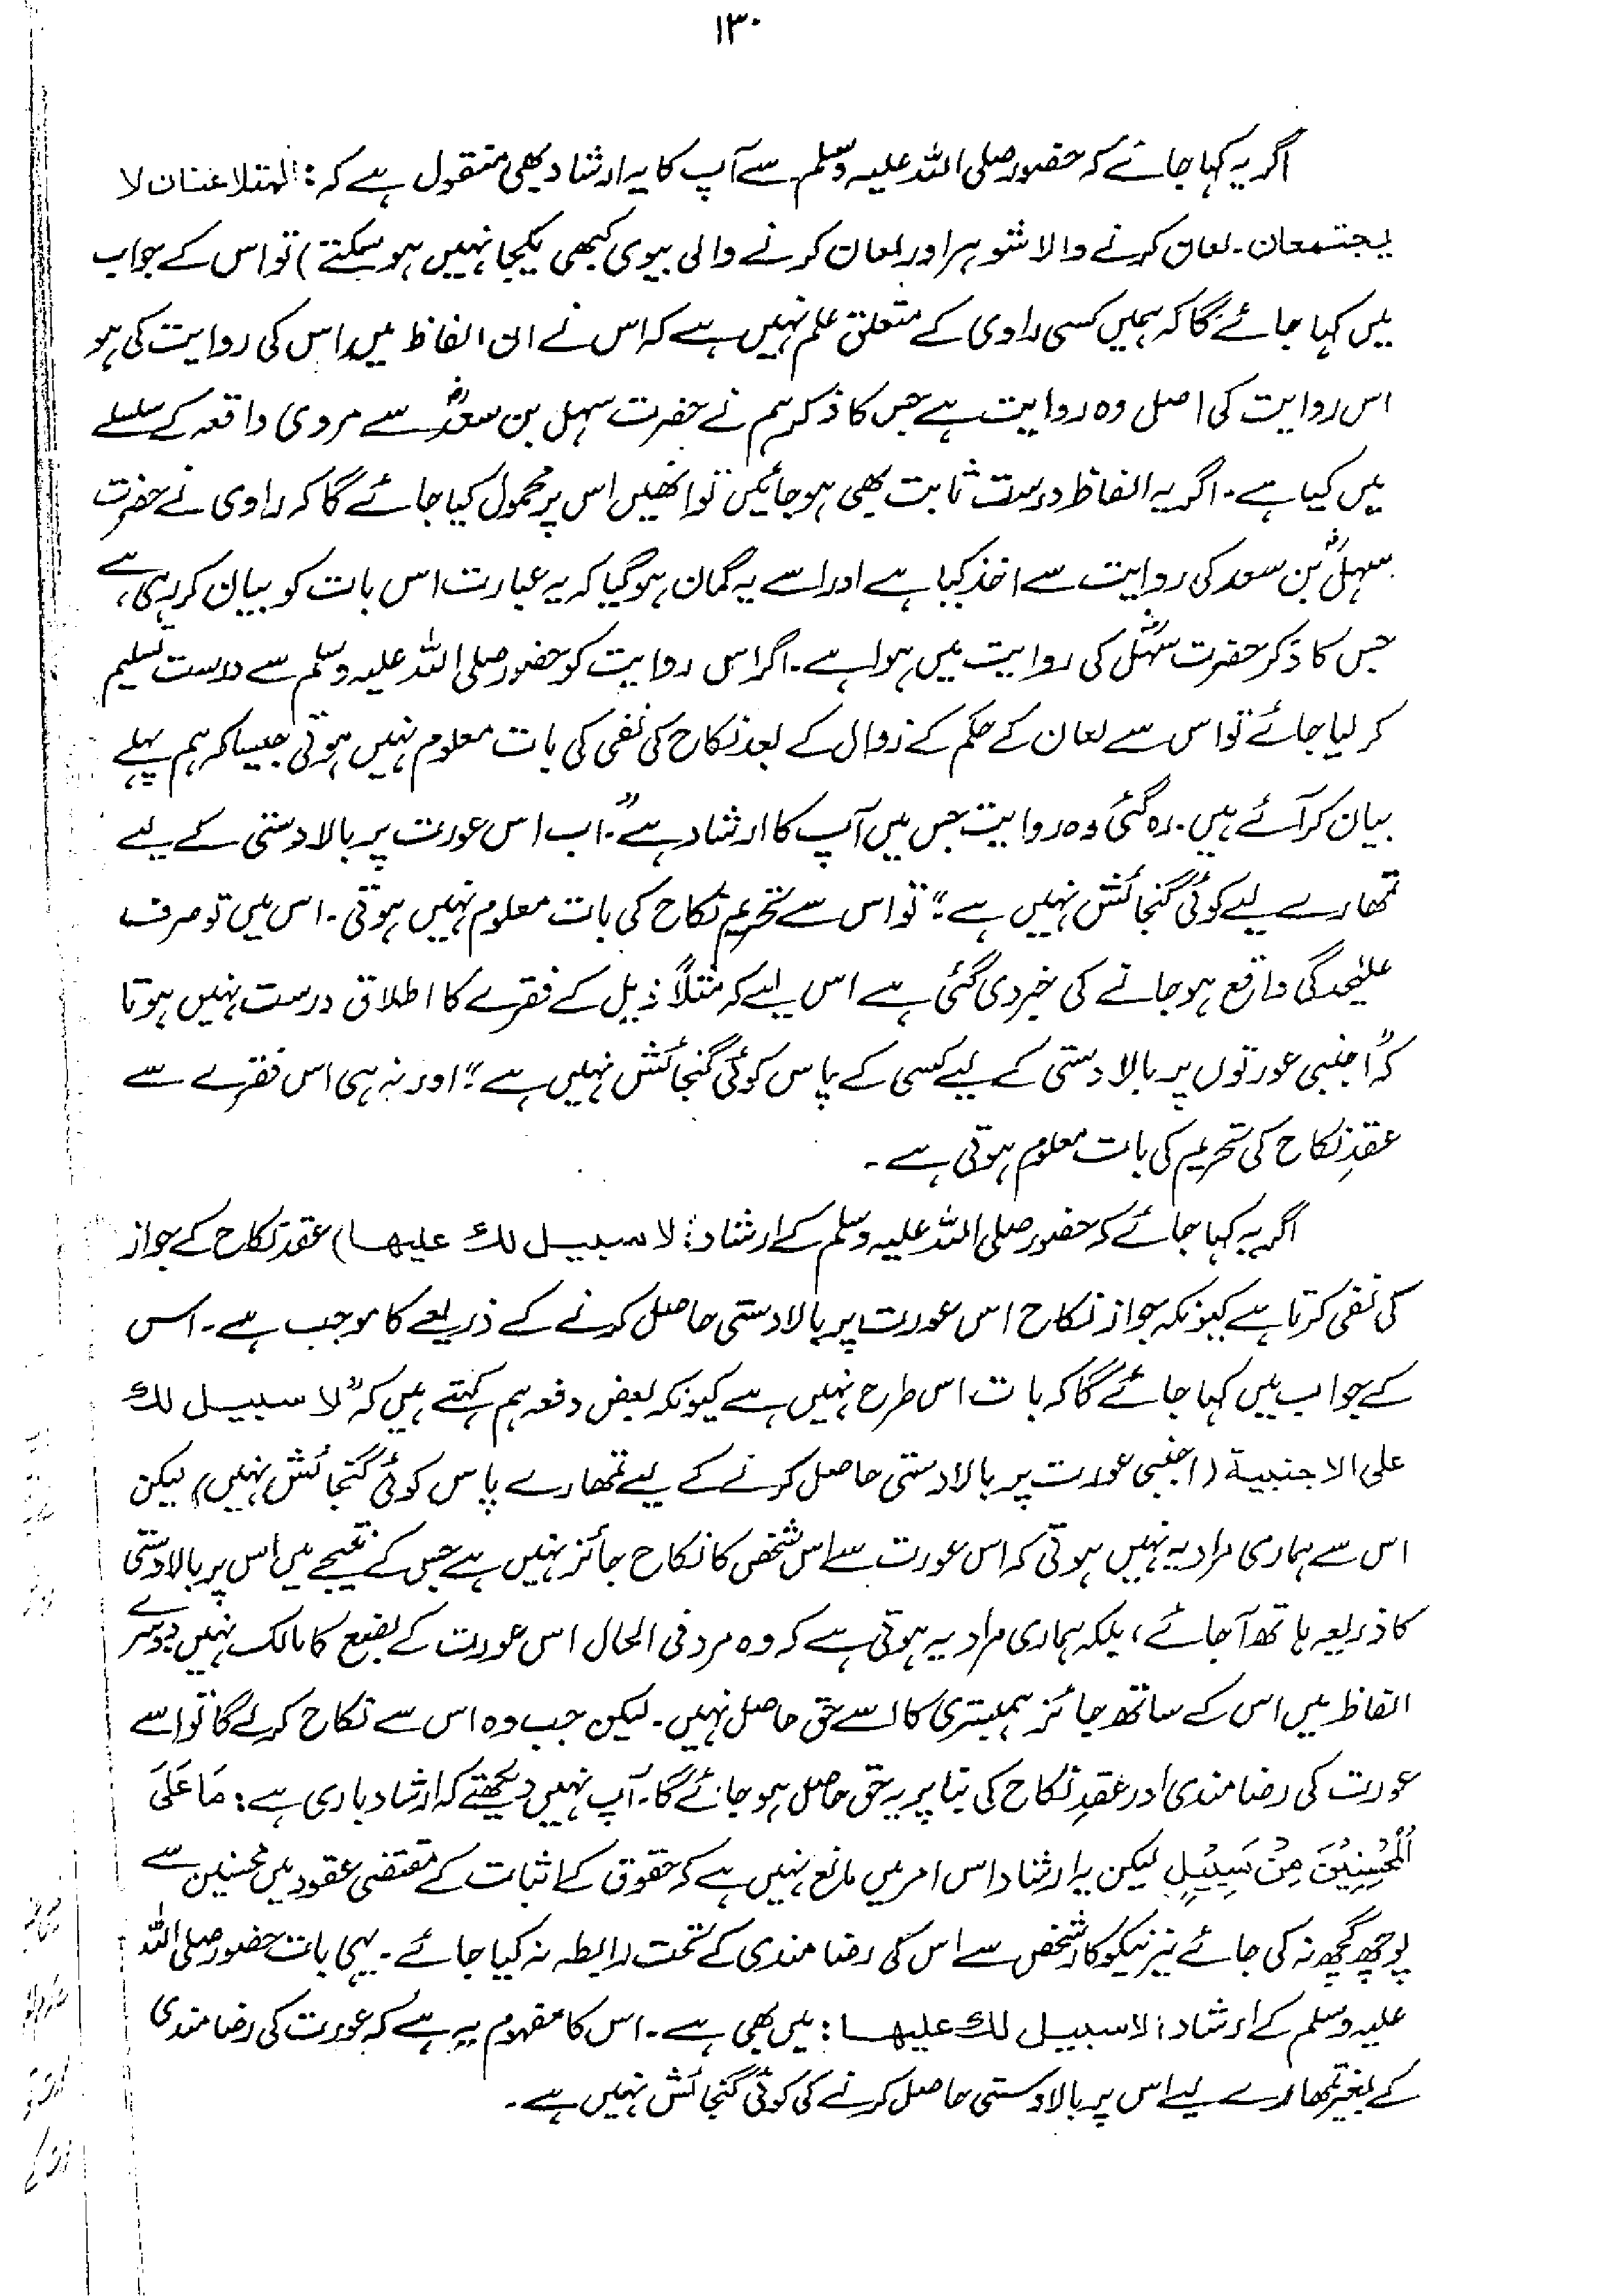 ۱۳۰
اگر یہ کہا جائے کہ حضور صلی اللہ علیہ وسلم سے آپ کا یہ ارشاد بھی منقول ہے کہ: المتلاعنان لا
یجتمعان۔ لعان کرنے والا شوہر اور لعان کرنے والی بیوی کبھی یکجا نہیں ہو سکتے) تو اس کے جواب
میں کہا جائے گا کہ ہمیں کسی راوی کے متعلق علم نہیں ہے کہ اس نے ان الفاظ میں اس کی روایت کی ہو
اس روایت کی اصل وہ روایت ہے جس کا ذکر ہم نے حضرت سہل بن سعدؓ سے مروی واقعہ کے سلسلے
میں کیا ہے۔ اگر یہ الفاظ درست ثابت بھی ہو جائیں تو انھیں اس پر محمول کیا جائے گا کہ راوی نے حضرت
سہلؓ بن سعد کی روایت سے اخذ کیا ہے اور اسے یہ گمان ہو گیا کہ یہ عبارت اس بات کو بیان کر رہی ہے،
جس کا ذکر حضرت سہلؓ کی روایت میں ہوا ہے۔ اگر اس روایت کو حضور صلی اللہ علیہ وسلم سے درست تسلیم
کر لیا جائے تو اس سے لعان کے حکم کے زوال کے بعد نکاح کی نفی کی بات معلوم نہیں ہوتی جیسا کہ ہم پہلے
بیان کر آئے ہیں۔ رہ گئی وہ روایت جس میں آپ کا ارشاد ہے "۔ اب اس عورت پر بالا دستی کے لیے
تمھارے لیے کوئی گنجائش نہیں ہے"۔ تو اس سے تحریم نکاح کی بات معلوم نہیں ہوتی۔ اس میں تو صرف
علیٰحدگی واقع ہو جانے کی خبر دی گئی ہے اس لیے کہ مثلاً ذیل کے فقرے کا اطلاق درست نہیں ہوتا
کہ "اجنبی عورتوں پر بالا دستی کے لیے کسی کے پاس کوئی گنجائش نہیں ہے"۔ اور نہ ہی اس فقرے سے
عقدِ نکاح کی تحریم کی بات معلوم ہوتی ہے۔
اگر یہ کہا جائے کہ حضور صلی اللہ علیہ وسلم کے ارشاد: لا سبیل لك علیها) عقد نکاح کے جواز
کی نفی کرتا ہے کیونکہ جواز نکاح اس عورت پر بالا دستی حاصل کرنے کے ذریعے کا موجب ہے۔ اس
کے جواب میں کہا جائے گا کہ بات اس طرح نہیں ہے کیونکہ بعض دفعہ ہم کہتے ہیں کہ "لا سبیل لك
علی الاجنبیة (اجنبی عورت پر بالا دستی حاصل کرنے کے لیے تمھارے پاس کوئی گنجائش نہیں) لیکن
اس سے ہماری مراد یہ نہیں ہوتی کہ اس عورت سے اس شخص کا نکاح جائز نہیں ہے جس کے نتیجے میں اس پر بالا دستی
کا ذریعہ ہاتھ آ جائے، بلکہ ہماری مراد یہ ہوتی ہے کہ وہ مرد فی الحال اس عورت کے بضع کا مالک نہیں دوسرے
الفاظ میں اس کے ساتھ جائز ہمبستری کا اسے حق حاصل نہیں۔ لیکن جب وہ اس سے نکاح کرلے گا تو اسے
عورت کی رضامندی اور عقدِ نکاح کی بنا پر یہ حق حاصل ہو جائے گا۔ آپ نہیں دیکھتے کہ ارشاد باری ہے: مَا عَلَی
الْمُحْسِنِیْنَ مِنْ سَبِیْلٍ لیکن یہ ارشاد اس امر میں مانع نہیں ہے کہ حقوق کے اثبات کے مقتضی عقود میں محسنین سے
پوچھ گچھ نہ کی جائے نیز نیکوکار شخص سے اس کی رضامندی کے تحت رابطہ نہ کیا جائے۔ یہی بات حضور صلی اللہ
علیہ وسلم کے ارشاد: لا سبیل لك علیها: میں بھی ہے۔ اس کا مفہوم یہ ہے کہ عورت کی رضامندی
کے بغیر تمھارے لیے اس پر بالا دستی حاصل کرنے کی کوئی گنجائش نہیں ہے۔